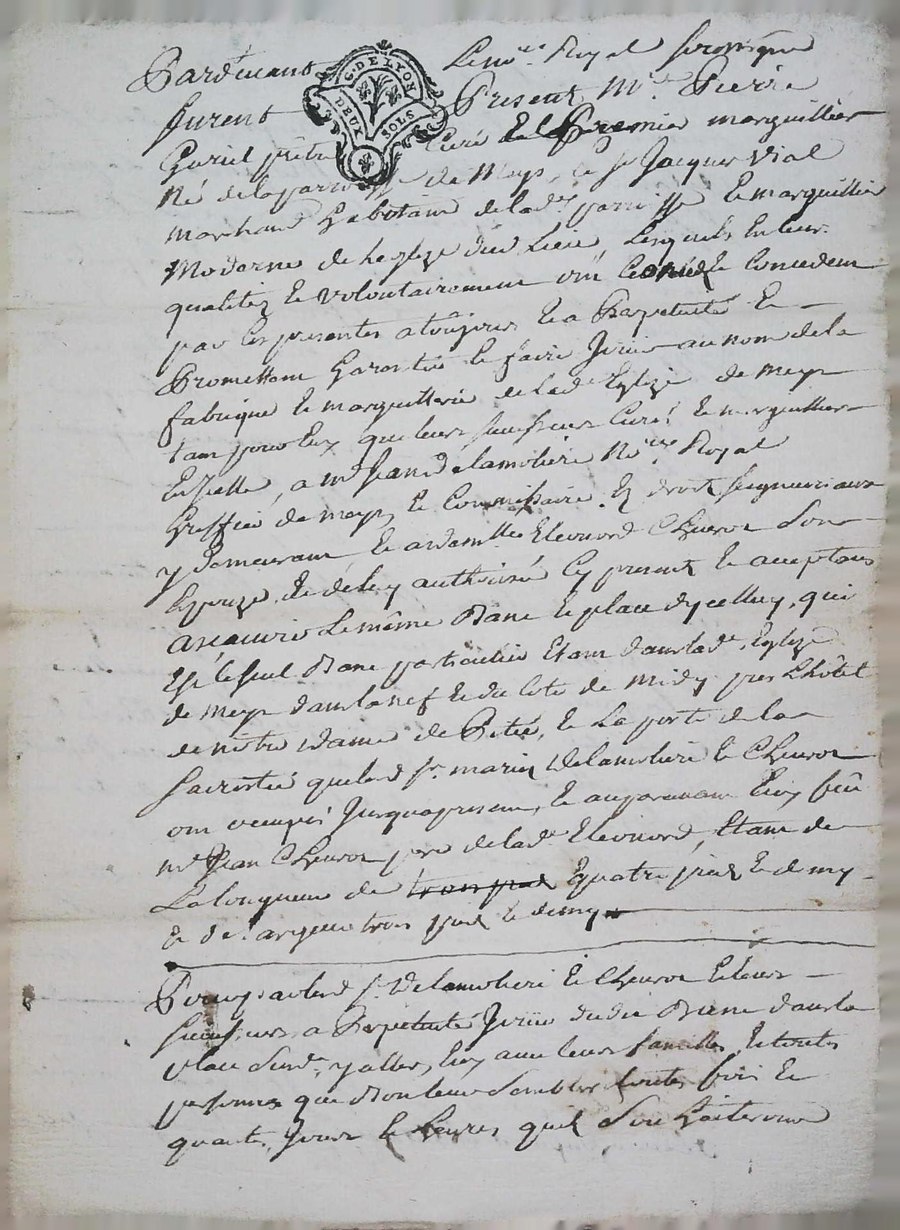 Pardevant Le no.re Royal soussigné
furent Present Mre Pierre
Guriel prêtre Curé et Premier marguillier
Né de la parroisse de Meys, le Sr Jacques Vial
marchand habitant de lad.e parroisse et marguillier
Moderne de Leglize dud Lieu, Lesquels En leur
qualitez et volontairement ont cedé et Concedent
par ces presentes a toûjours et a Perpetuité et
Promettent Garentir et faire Jouir au nom de la
fabrique et marguillerie de lad.e Eglize de meys
tant pour Eux que leurs successeurs Curé et marguilliers
En Icelle, a Me Jean Delamoliere No.re Royal
Greffier de meys, et Commissaire En droits seigneuriaux
y demeurant et a dam.lle Eleonord Chevron Son
Epouze de de luy authorisée Cy present et acceptans
Le même Banc et place dycelluy, qui
Est le seul Banc particulier Etant dans lad.e Eglize
de meys dans la nef et du coté de midy pres L'hôtel
de nôtre dame de Pitié, et La porte de la
Sacristie que led Sr. mariez Delamoliere et Chevron
ont occupés Jusqu'apresent, et auparavant Eux feû
me Jean Chevron pere de lad.e Eleonord, Etant de
La longueur de trois pied Equatre pied et demy
et de largeur trois pied et demy
Pour par led S.r Delamoliere et Chevron Et leurs
successeurs a Perpetuité Jouir dudit Banc dans la
place Susd.e, y aller, Eux avec leurs familles Et toutes
personnes que Bon leur Semblera toutes fois et
quantes, Jours et heures quil Souhaiterons
G. DE LYON
DEUX SOLS